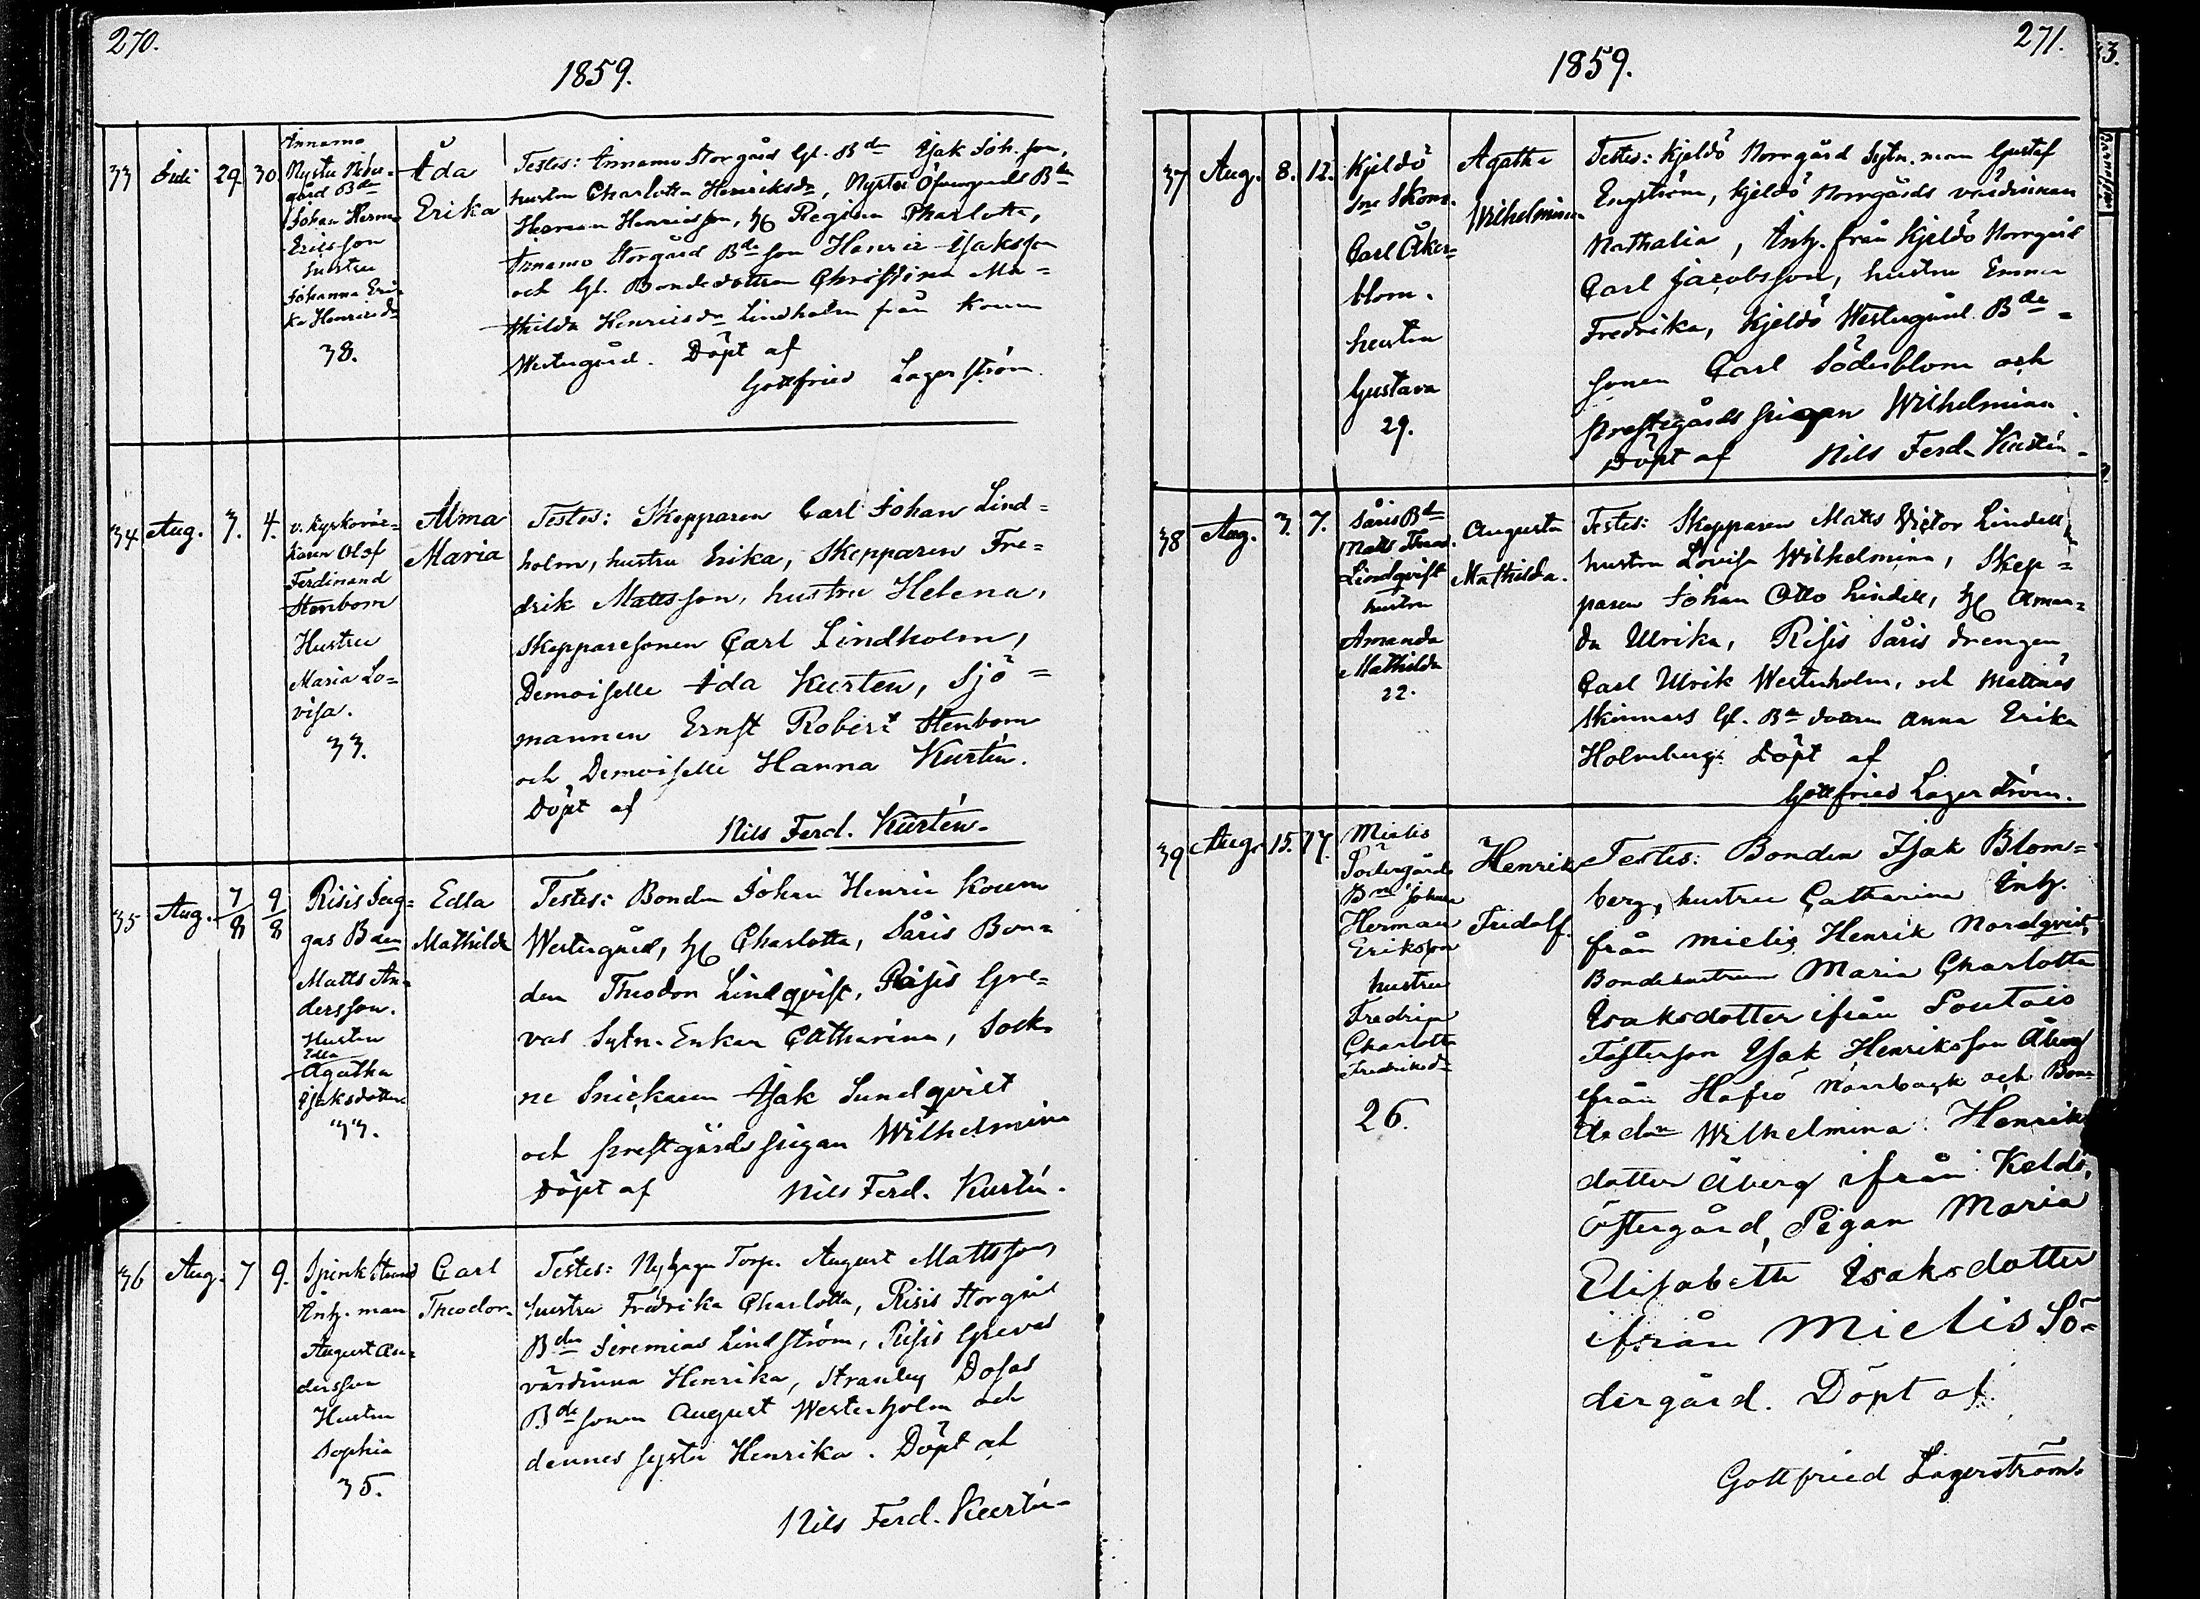 270.
1859.
33
Juli
29
30
Annamo
Nystu Neder=
gård Bden
Johan Herm.
Ericsson
hustru
Johanna Eri=
ka Henricsdr
38.
Ada
Erika
Testes: Annamo Storgård Gl. Bden Isak Joh. son,
hustru Charlotta Henriksdr, Nystu Öfvergårds Bden
Herman Henricsson, H. Regina Charlotta,
Annamo Storgård Bde son Henric Isaksson
och Gl. Bondedottren Christina Ma=
thilda Henricsdr Lindholm från Koum
Westergård. Döpt af
Gottfried Lagerström.
34
Aug.
3.
4.
v. kyrkovär=
karen Olof
Ferdinand
Stenbom
Hustru
Maria Lo=
visa.
33.
Alma
Maria
Testes: Skepparen Carl Johan Lind=
holm, hustru Erika, Skepparen Fre=
drik Mattsson, hustru Helena,
Skepparesonen Carl Lindholm,
Demoiselle Ida Kurten, Sjö=
mannen Ernst Robert Stenbom
och Demoiselle Hanna Kurtén.
Döpt af
Nils Ferd. Kurtén.
35
Aug.
7/8
9/8
Risis Seg=
gas Bden
Matts An=
dersson.
Hustru
Edla
Agatha
Isaksdotter
33.
Edla
Mathilda
Testes: Bonden Johan Henric Koum
Westergård, H. Charlotta, Såris Bon=
den Theodor Lindqvist, Risis Gre=
vas Sytn. Enkan Catharina, Sock=
ne Snickaren Isak Sundqvist
och prestgårds pigan Wilhelmina
Döpt af
Nils Ferd. Kurtén.
36
Aug.
7
9.
Spink Strand
Inh. man
August An=
dersson
Hustru
Sophia
35.
Carl
Theodor.
Testes: Nyhaga Torp. August Mattsson,
hustru Fredrika Charlotta, Risis Storgård
Bden Jeremias Lindström, Risis Grevas
värdinna Henrika, Stranby Dofas
Bde sonen August Westerholm och
dennes syster Henrika. Döpt af
Nils Ferd. Kurtén
271.
1859.
37
Aug.
8.
12.
Kjeldö
Sne Skom.
Carl Åker=
blom.
hustru
Gustava
29.
Agatha
Wilhelmina
Testes: Kjeldö Norrgård Sytn. man Gustaf
Engström, Kjeldö Norrgårds värdinnan
Nathalia, Inh. från Kjeldö Norrgård
Carl Jacobsson, hustru Emma
Fredrika, Kjeldö Westergård Bde=
sonen Carl Söderblom och
prestegårds pigan Wilhelmina.
Döpt af
Nils Ferd. Kurtén.
38
Aug.
3.
7.
Såris Bd
Matts Theod.
Lindqvist
hustru
Amanda
Mathilda
22.
Augusta
Mathilda.
Testes: Skepparen Matts Victor Lindell
hustru Lovisa Wilhelmina, Skep=
paren Johan Otto Lindell, H. Aman=
da Ulrika, Risis Såris drengen
Carl Ulrik Westerholm, och Mattnäs
Skinnars Gl. Bde dottren Anna Erika
Holmberg. Döpt af
Gottfried Lagerström.
39
Aug.
15.
17.
Mielis
Södergårds
Bdn Johan
Herman
Eriksson
hustru
Fredrica
Charlotta
Fredriksdr
26.
Henrik
Fridolf.
Testes: Bonden Isak Blom=
berg, hustru Catharina Inh.
från Mielis Henrik Nordqvist,
Bondehustrun Maria Charlotta
Isaksdotter ifrån Poutais
Fosterson Isak Henriksson Åberg
ifrån Hafrö Norrback och Bon=
dedn Wilhelmina Henriks
dotter Åberg ifrån Keldö,
Östergård, Pigan Maria
Elisabeth Isaksdotter
ifrån Mielis Sö=
dergård. Döpt af.
Gottfried Lagerström.